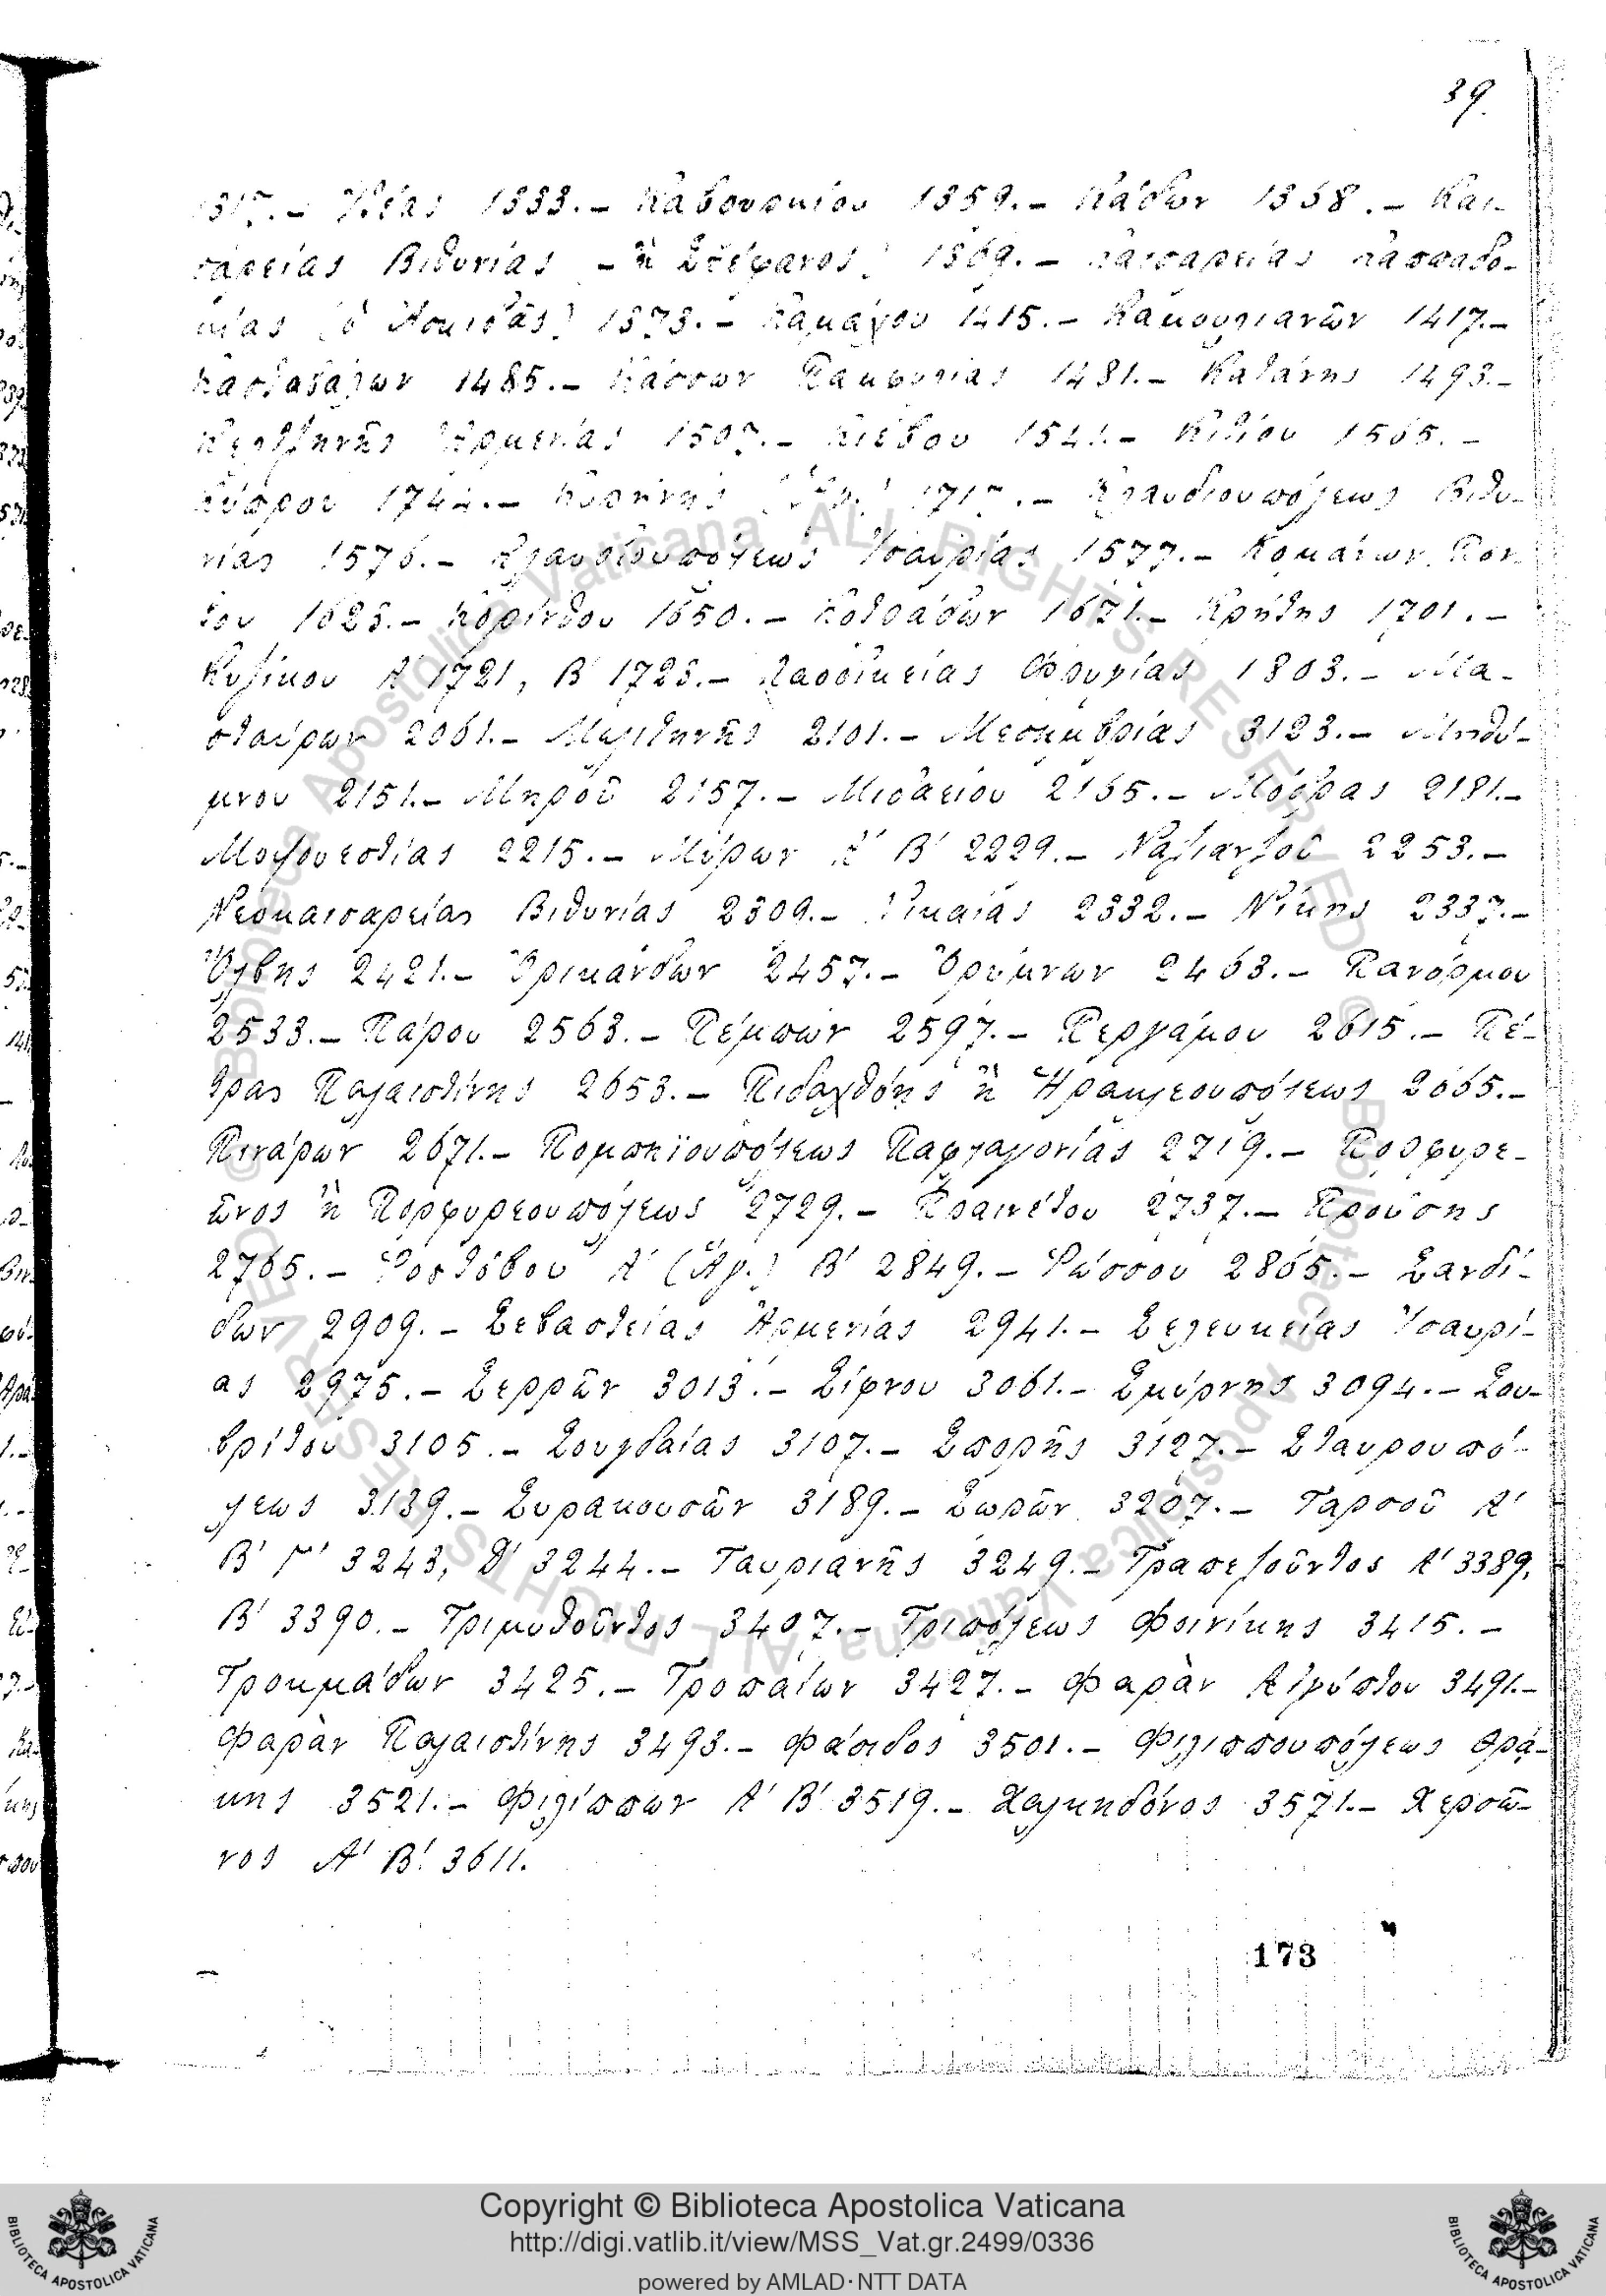 39.
1317.– Κέας 1333.– Καβουρκίου 1359.– Κάδων 1368.– Και-
σαρείας Βιθυνίας – ἢ Στέφανος) 1369.– Καισαρείας Καππαδο-
κίας (ὁ 1373.– Καμάχου 1415.– Καμουλιανῶν 1417.–
Κασταβάλων 1485.– Κάσσων Παμφυλίας 1481.– Κατάνης 1493.–
Κελτζηνῆς Ἀρμενίας 1507.– Κιέβου 1541.– Κιτίου 1565.–
Κύπρου 1744.– Κυρήνης 171 .– Κλαυδιουπόλεως Βιθυ-
νίας 1576.– Κλαυδιουπόλεως Ἰσαυρίας 1577.– Κομάνων Πόν-
του 1623.– Κορίνθου 1650.– Κοτράδων 1671.– Κρήτης 1701.–
Κυζίκου Α′ 1721, Β′ 1723.– Λαοδικείας Φρυγίας 1803.– Μα-
σταύρων 2061.– Μελιτηνῆς 2101.– Μεσημβρίας 3123.– Μηθύ-
μνου 2151.– Μηροῦ 2157.– Μιδαείου 2165.– Μόβρας 2181.–
Μοψουεστίας 2215.– Μύρων Α′ Β′ 2229.– Ναζιανζοῦ 2253.–
Νεοκαισαρείας Βιθυνίας 2309.– Νικαίας 2332.– Νίκης 2337.–
Ὄλβης 2421.– Ὀρικάνδων 2457.– Ὀρύμνων 2463.– Πανόρμου
2533.– Πάρου 2563.– Πέμπων 2597.– Περγάμου 2615.– Πέ-
τρας Παλαιστίνης 2653.– Πιδαχθόης ἢ Ἡρακλεουπόλεως 2665.–
Πινάρων 2671.– Πομπηϊουπόλεως Παφλαγονίας 2719.– Πορφυρε-
ῶνος ἢ Πορφυρεουπόλεως 2729.– Πραινέτου 2737.– Προύσης
2765.– Ῥοστόβου Α′ (Ἁγ.) Β′ 2849.– Ῥώσσου 2865.– Σανδί-
δων 2909.– Σεβαστείας Ἀρμενίας 2941.– Σελευκείας Ἰσαυρί-
ας 2975.– Σερρῶν 3013.– Σίφνου 3061.– Σμύρνης 3094.– Σου-
βρίτου 3105.– Σουγδαίας 3107.– Σπορῆς 3127.– Σταυρουπό-
λεως 3139.– Συρακουσῶν 3189.– Σωρῶν 3207.– Ταρσοῦ Α′
Β′ Γ′ 3243, Δ′ 3244.– Ταυριανῆς 3249.– Τραπεζοῦντος Α′ 3389,
Β′ 3390.– Τριμυθοῦντος 3407.– Τριπόλεως Φοινίκης 3415.–
Τροκμάδων 3425.– Τροπαίων 3427.– Φαρὰν Αἰγύπτου 3491.–
Φαρὰν Παλαιστίνης 3493.– Φάσιδος 3501.– Φιλιππουπόλεως Θρά-
κης 3521.– Φιλίππων Α′ Β′ 3519.– Χαλκηδόνος 3571.– Χερσῶ-
νος Α′ Β′ 3611.
173
Copyright © Biblioteca Apostolica Vaticana
http://digi.vatlib.it/view/MSS_Vat.gr.2499/0336
powered by AMLAD·NTT DATA